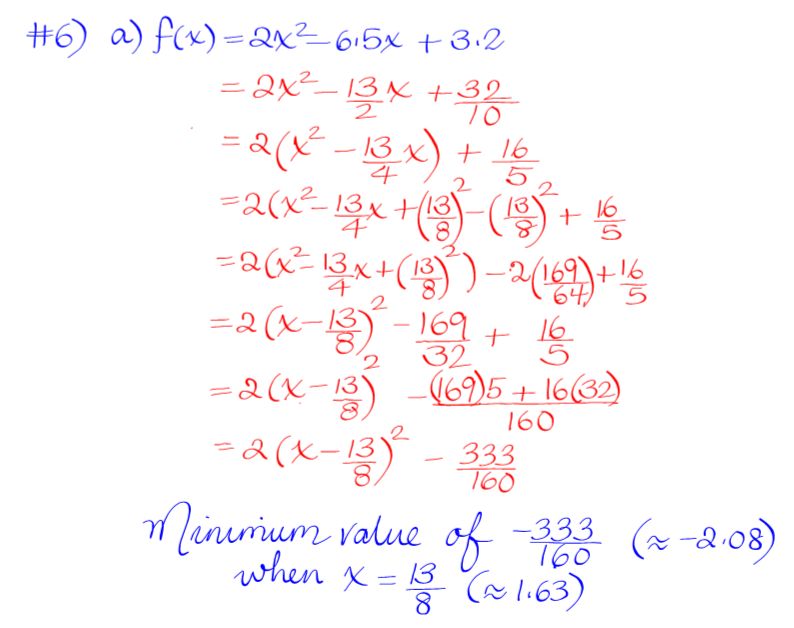 #6) a) f(x) = 2x² - 6.5x + 3.2
= 2x² - 13/2 x + 32/10
= 2(x² - 13/4 x) + 16/5
= 2(x² - 13/4 x + (13/8)² - (13/8)² + 16/5
= 2(x² - 13/4 x + (13/8)²) - 2(169/64) + 16/5
= 2(x - 13/8)² - 169/32 + 16/5
= 2(x - 13/8)² -(169)5 + 16(32)/160
= 2(x - 13/8)² - 333/160
Minimum value of -333/160 (≈ -2.08)
when x = 13/8 (≈ 1.63)